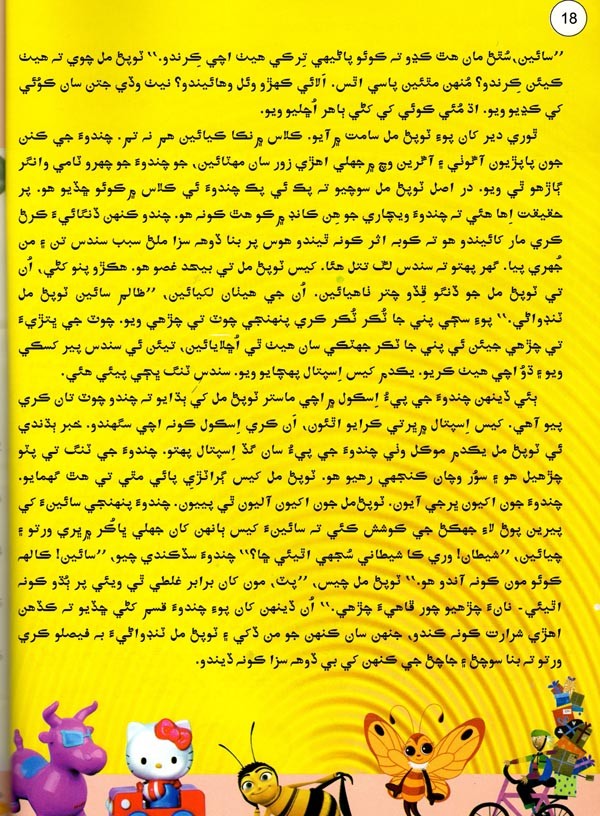 18
”سائين، سُٿڻ مان هٿ ڪڍو ته ڪوئو پاڻيهي ترڪي هيٺ اچي ڪِرندو.“ ٽوپڻ مل چوي ته هيٺ
ڪيئن ڪِرندو؟ مُنهن مٿئين پاسي اٿس. اَلائي ڪهڙو وئل وهائيندو؟ نيٺ وڏي جتن سان ڪوُئي
کي ڪڍيو ويو. اڌ مُئي ڪوئي کي کڻي ٻاهر اُڇليو ويو.
ٿوري دير کان پوءِ ٽوپڻ مل سامت ۾ آيو. ڪلاس ۾ نڪا ڪيائين هم نه تم. چندوءَ جي ڪنن
جون پاپڙيون آڱوٺي ۽ آڱرين وچ ۾ جهلي اهڙي زور سان مهٽائين، جو چندوءَ جو چهرو ٽامي وانگر
ڳاڙهو ٿي ويو. در اصل ٽوپڻ مل سوچيو ته پڪ ئي پڪ چندوءَ ئي ڪلاس ۾ ڪوئو ڇڏيو هو. پر
حقيقت اِها هئي ته چندوءَ ويچاري جو هِن ڪانڊ ۾ ڪو هٿ ڪونه هو. چندو ڪنهن ڏنگائيءَ ڪرڻ
ڪري مار کائيندو هو ته ڪوبه اثر ڪونه ٿيندو هوس پر بنا ڏوهه سزا ملڻ سبب سندس تن ۽ من
جُهري پيا. گهر پهتو ته سندس لڱ تتل هئا. کيس ٽوپڻ مل تي بيحد غصو هو. هڪڙو پنو کڻي، اُن
تي ٽوپڻ مل جو ڏنگو ڦِڏو چتر ٺاهيائين. اُن جي هيٺان لکيائين، ”ظالم سائين ٽوپڻ مل
ٽنڊواڻي.“ پوءِ سڄي پني جا ٽُڪر ٽُڪر ڪري پنهنجي چوٽ تي چڙهي ويو. چوٽ جي ڀتڙيءَ
تي چڙهي جيئن ئي پني جا ٽڪر جهٽڪي سان هيٺ ٿي اُڇلايائين، تيئن ئي سندس پير کسڪي
ويو ۽ ڌوُ اچي هيٺ ڪريو. يڪدم کيس اِسپتال پهچايو ويو. سندس ٽنگ ڀڄي پيئي هئي.
ٻئي ڏينهن چندوءَ جي پيءُ اِسڪول ۾ اچي ماستر ٽوپڻ مل کي ٻڌايو ته چندو چوٽ تان ڪري
پيو آهي. کيس اِسپتال ۾ ڀرتي ڪرايو اٿئون، اَن ڪري اِسڪول ڪونه اچي سگهندو. خبر ٻڌندي
ئي ٽوپڻ مل يڪدم موڪل وٺي چندوءَ جي پيءُ سان گڏ اِسپتال پهتو. چندوءَ جي ٽنگ تي پٽو
چڙهيل هو ۽ سوُر وچان ڪنجهي رهيو هو. ٽوپڻ مل کيس ڳراٽڙي پائي مٿي تي هٿ گهمايو.
چندوءَ جون اکيون ڀرجي آيون. ٽوپڻ مل جون اکيون آليون ٿي پييون. چندوءَ پنهنجي سائينءَ کي
پيرين پوڻ لاءِ جهڪڻ جي ڪوشش ڪئي ته سائينءَ کيس ٻانهن کان جهلي ڀاڪُر ۾ ڀري ورتو ۽
چيائين، ”شيطان! وري ڪا شيطاني سُجهي اٿيئي ڇا؟“ چندوءَ سڏڪندي چيو، ”سائين! ڪالهه
ڪوئو مون ڪونه آندو هو.“ ٽوپڻ مل چيس، ”پٽ، مون کان برابر غلطي ٿي ويئي پر ٻُڌو ڪونه
اٿيئي- نانءَ چڙهيو چور ڦاهيءَ چڙهي.“ اُن ڏينهن کان پوءِ چندوءَ قسم کڻي ڇڏيو ته ڪڏهن
اهڙي شرارت ڪونه ڪندو، جنهن سان ڪنهن جو من ڏکي ۽ ٽوپڻ مل ٽنڊواڻيءَ به فيصلو ڪري
ورتو ته بنا سوچڻ ۽ جاچڻ جي ڪنهن کي بي ڏوهه سزا ڪونه ڏيندو.